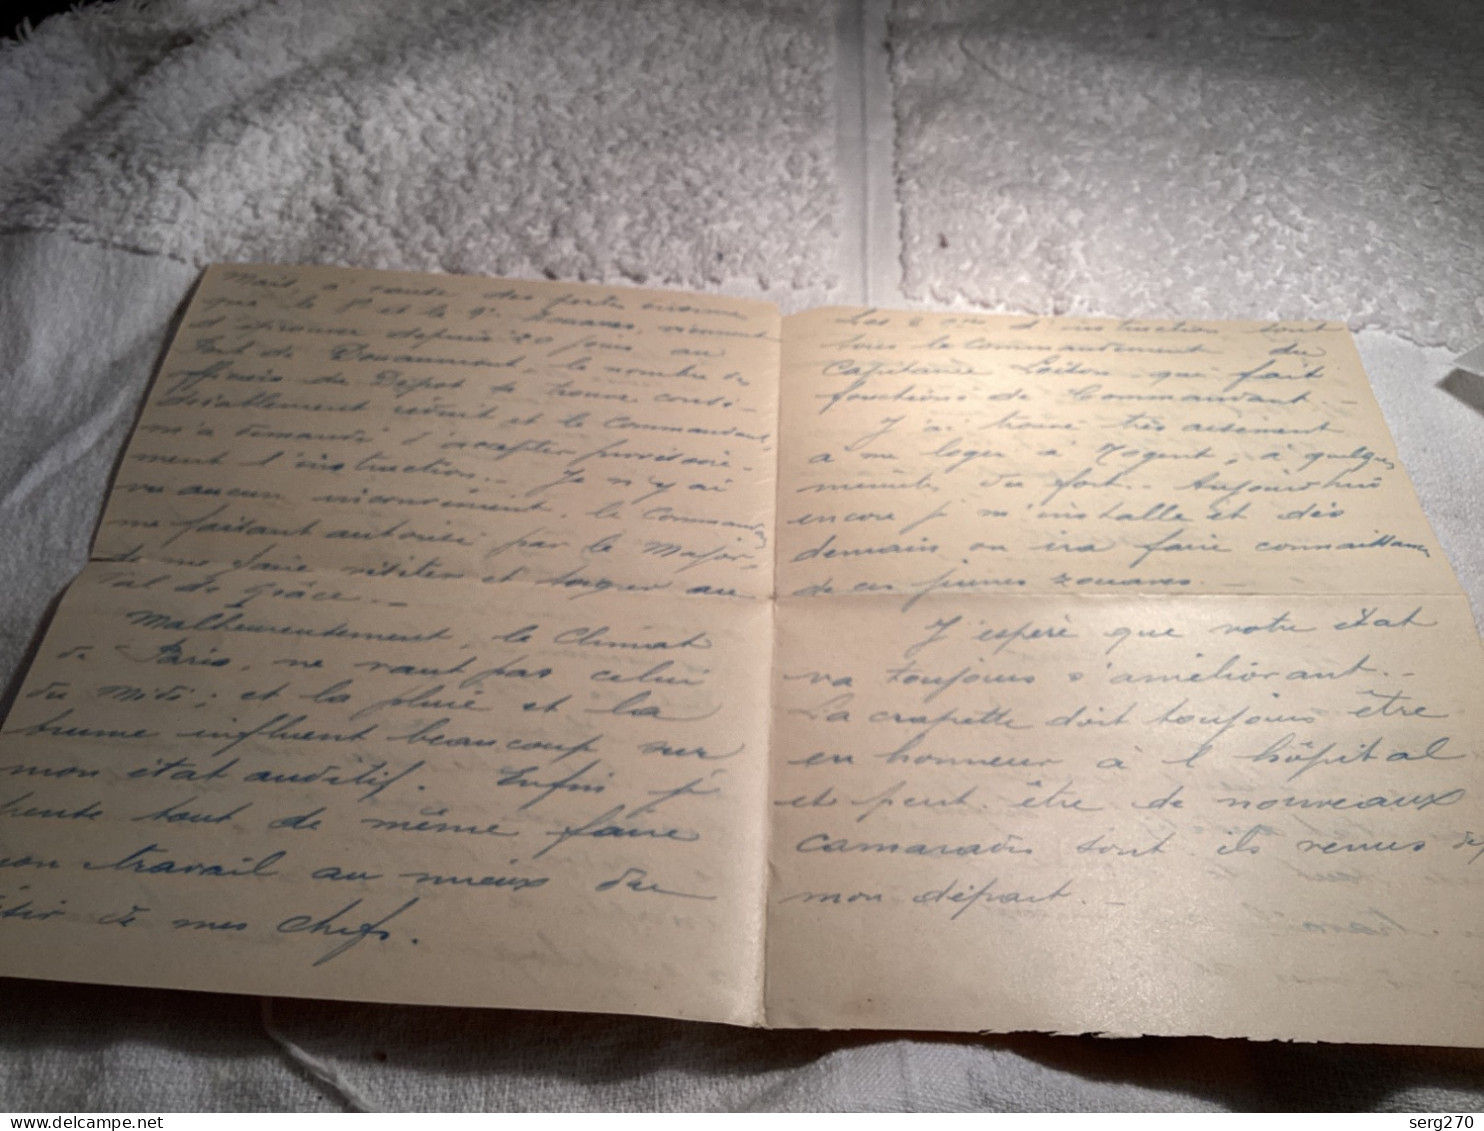 Mais, à cause des pertes énormes
que le 8e et le 9e Zouaves, viennent
d'éprouver depuis 20 jours au
fort de Douaumont - le nombre des
officiers du Dépôt se trouve consi-
dérablement réduit et le Commandant,
m'a demandé d'accepter provisoire-
ment l'instruction. Je n'y ai
vu aucun inconvénient, le Commandant
me faisant autoriser par le Major
de me faire visiter et soigner au
Val de Grâce. -
Malheureusement, le Climat
de Paris, ne vaut pas celui
du Midi ; et la pluie et la
brume influent beaucoup sur
mon état auditif. Enfin je
tout de même faire
mon travail au mieux du
à mes chefs.
Les d'instruction sont
sous le Commandement du
Capitaine qui fait
fonctions de Commandant. -
J'ai trouvé très aisément
à me loger à Nogent, à quelques
minutes du fort. Aujourd'hui
encore je m'installe et dès
demain on ira faire connaissance
de ces jeunes zouaves. -
J'espère que votre état
va toujours s'améliorant. -
La crapette doit toujours être
en honneur à l'hôpital
et peut être de nouveaux
camarades sont ils venus depuis
mon départ. -
serg270